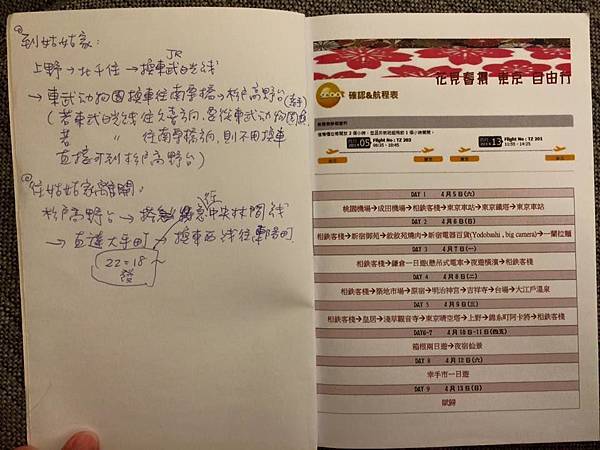 到姑姑家:
JR
上野→北千住→換東武日光線
→東武动物園換車往南栗橋→杉戶高野台(幸手)
(若東武日光线往久喜方向,
若 〃 往南栗橋方向,則不用換車
直接可到杉戶高野台)
從姑姑家離開:
杉戶高野台→ 中央林間线
→直達大手町→換東西线往
22=18
發
花見春櫻 東京 自由行
scoot 確認&航程表
05 Flight No : TZ 202
06:25 - 10:45
13 Flight No : TZ 201
11:55 - 14:25
DAY 1 4月5日(六)
桃園機場→成田機場→相鉄客棧→東京車站→東京鐵塔→東京車站
DAY 2 4月6日(日)
相鉄客棧→新宿御苑→敘敘苑燒肉→新宿電器百貨(Yodobashi , big camera)→一蘭拉麵
DAY 3 4月7日(一)
相鉄客棧→鎌倉一日遊(懸吊式電車→夜遊橫濱→相鉄客棧
DAY 4 4月8日(二)
相鉄客棧→築地市場→原宿→明治神宮→吉祥寺→台場→大江戶溫泉
DAY 5 4月9日(三)
相鉄客棧→皇居→淺草觀音寺→東京晴空塔→上野→錦糸町阿卡將→相鉄客棧
DAY6~7 4月10日-11日(四五)
箱根兩日遊→夜宿仙景
DAY 8 4月12日(六)
幸手市一日遊
DAY 9 4月13日(日)
賦歸